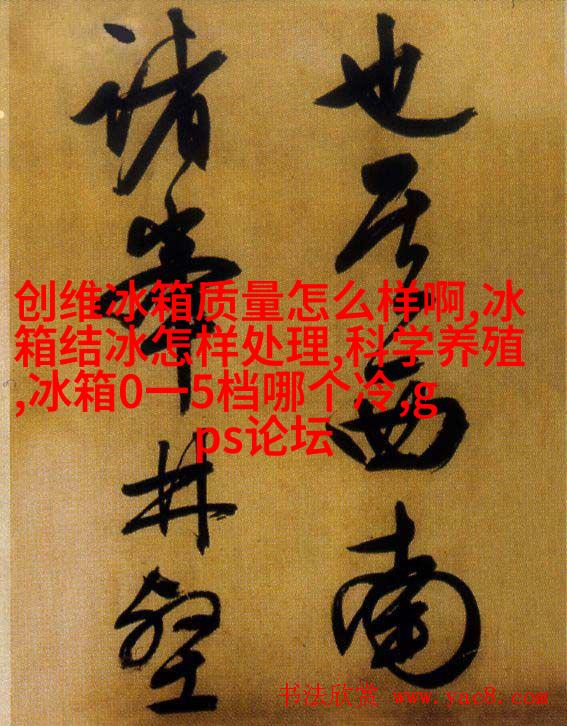 也其西南
諸峯林壑
创维冰箱质量怎么样啊,冰
箱结冰怎样处理,科学养殖
,冰箱0一5档哪个冷,g
ps论坛
书法欣赏 www.yac8.com